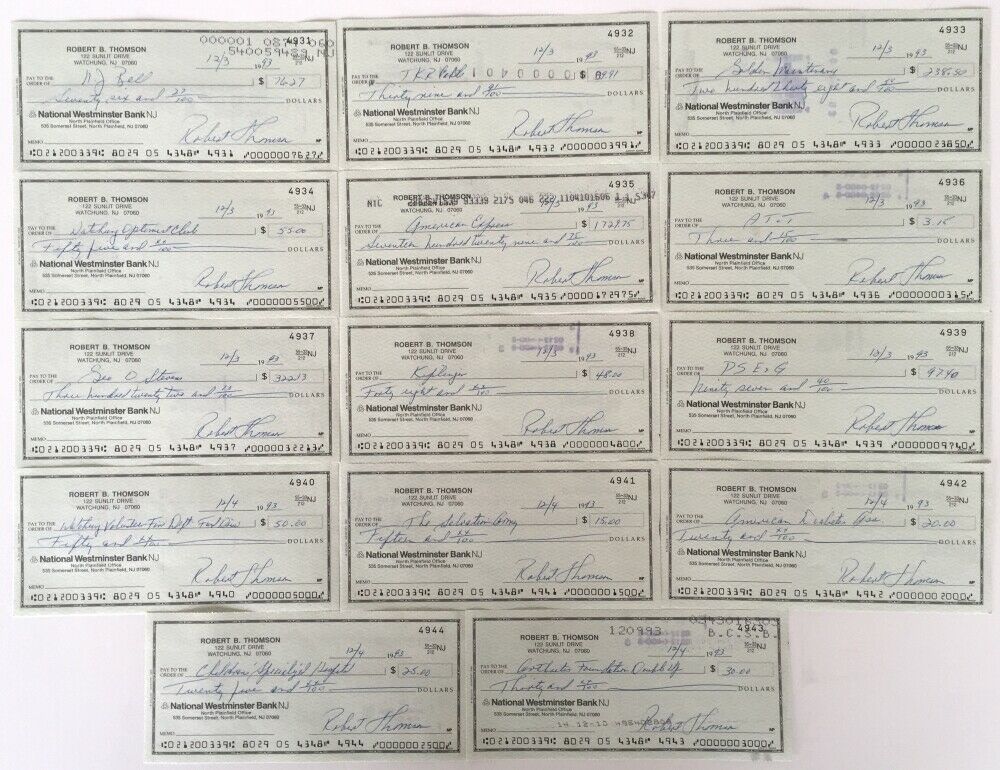 ROBERT B. THOMSON
122 SUNLIT DRIVE
WATCHUNG, NJ 07060
4931
000001
540059489 NJ
12/3 1993
PAY TO THE ORDER OF N J Bell $ 76.27
Seventy six and 27/100 DOLLARS
National Westminster Bank NJ
North Plainfield Office
535 Somerset Street, North Plainfield, NJ 07060
MEMO Robert Thomson
021200339 8029 05 4348 4931 0000007627
ROBERT B. THOMSON
122 SUNLIT DRIVE
WATCHUNG, NJ 07060
4932
12/3 1993
PAY TO THE ORDER OF $ 39.91
Thirty nine and 91/100 DOLLARS
National Westminster Bank NJ
North Plainfield Office
535 Somerset Street, North Plainfield, NJ 07060
MEMO Robert Thomson
021200339 8029 05 4348 4932 0000003991
ROBERT B. THOMSON
122 SUNLIT DRIVE
WATCHUNG, NJ 07060
4933
12/3 1993
PAY TO THE ORDER OF Golden $ 238.50
Two hundred thirty eight and 50/100 DOLLARS
National Westminster Bank NJ
North Plainfield Office
535 Somerset Street, North Plainfield, NJ 07060
MEMO Robert Thomson
021200339 8029 05 4348 4933 0000023850
ROBERT B. THOMSON
122 SUNLIT DRIVE
WATCHUNG, NJ 07060
4934
12/3 1993
PAY TO THE ORDER OF Watchung Optimist Club $ 55.00
Fifty five and xx/100 DOLLARS
National Westminster Bank NJ
North Plainfield Office
535 Somerset Street, North Plainfield, NJ 07060
MEMO Robert Thomson
021200339 8029 05 4348 4934 0000005500
ROBERT B. THOMSON
WATCHUNG, NJ 07060
4935
NTC 93339 2175 046 222 1104101606 1 1 5367
12/3 1993
PAY TO THE ORDER OF American Express $ 1729.75
Seventeen hundred twenty nine and 75/100 DOLLARS
National Westminster Bank NJ
North Plainfield Office
535 Somerset Street, North Plainfield, NJ 07060
MEMO Robert Thomson
021200339 8029 05 4348 4935 0000172975
ROBERT B. THOMSON
122 SUNLIT DRIVE
WATCHUNG, NJ 07060
4936
12/3 1993
PAY TO THE ORDER OF AT&T $ 3.15
Three and 15/100 DOLLARS
National Westminster Bank NJ
North Plainfield Office
535 Somerset Street, North Plainfield, NJ 07060
MEMO Robert Thomson
021200339 8029 05 4348 4936 0000000315
ROBERT B. THOMSON
122 SUNLIT DRIVE
WATCHUNG, NJ 07060
4937
12/3 1993
PAY TO THE ORDER OF Geo O Stevens $ 322.13
Three hundred twenty two and 13/100 DOLLARS
National Westminster Bank NJ
North Plainfield Office
535 Somerset Street, North Plainfield, NJ 07060
MEMO Robert Thomson
021200339 8029 05 4348 4937 0000032213
ROBERT B. THOMSON
122 SUNLIT DRIVE
WATCHUNG, NJ 07060
4938
12/3 1993
PAY TO THE ORDER OF Kiplinger $ 48.00
Forty eight and xx/100 DOLLARS
National Westminster Bank NJ
North Plainfield Office
535 Somerset Street, North Plainfield, NJ 07060
MEMO Robert Thomson
021200339 8029 05 4348 4938 0000004800
ROBERT B. THOMSON
122 SUNLIT DRIVE
WATCHUNG, NJ 07060
4939
12/3 1993
PAY TO THE ORDER OF PSE&G $ 97.40
Ninety seven and 40/100 DOLLARS
National Westminster Bank NJ
North Plainfield Office
535 Somerset Street, North Plainfield, NJ 07060
MEMO Robert Thomson
021200339 8029 05 4348 4939 0000009740
ROBERT B. THOMSON
122 SUNLIT DRIVE
WATCHUNG, NJ 07060
4940
12/4 1993
PAY TO THE ORDER OF Watchung Volunteer Fire Dept Fund $ 50.00
Fifty and xx/100 DOLLARS
National Westminster Bank NJ
North Plainfield Office
535 Somerset Street, North Plainfield, NJ 07060
MEMO Robert Thomson
021200339 8029 05 4348 4940 0000005000
ROBERT B. THOMSON
122 SUNLIT DRIVE
WATCHUNG, NJ 07060
4941
12/4 1993
PAY TO THE ORDER OF The Salvation Army $ 15.00
Fifteen and xx/100 DOLLARS
National Westminster Bank NJ
North Plainfield Office
535 Somerset Street, North Plainfield, NJ 07060
MEMO Robert Thomson
021200339 8029 05 4348 4941 0000001500
ROBERT B. THOMSON
122 SUNLIT DRIVE
WATCHUNG, NJ 07060
4942
12/4 1993
PAY TO THE ORDER OF American Diabetes Asso $ 20.00
Twenty and xx/100 DOLLARS
National Westminster Bank NJ
North Plainfield Office
535 Somerset Street, North Plainfield, NJ 07060
MEMO Robert Thomson
021200339 8029 05 4348 4942 0000002000
ROBERT B. THOMSON
122 SUNLIT DRIVE
WATCHUNG, NJ 07060
4944
12/4 1993
PAY TO THE ORDER OF Childrens Specialized Hospital $ 25.00
Twenty five and xx/100 DOLLARS
National Westminster Bank NJ
North Plainfield Office
535 Somerset Street, North Plainfield, NJ 07060
MEMO Robert Thomson
021200339 8029 05 4348 4944 0000002500
ROBERT B. THOMSON
122 SUNLIT DRIVE
WATCHUNG, NJ 07060
120993
4943
B.C.S.B.
12/4 1993
PAY TO THE ORDER OF Foundation $ 30.00
Thirty and xx/100 DOLLARS
National Westminster Bank NJ
North Plainfield Office
535 Somerset Street, North Plainfield, NJ 07060
MEMO Robert Thomson
021200339 8029 05 4348 4943 0000003000